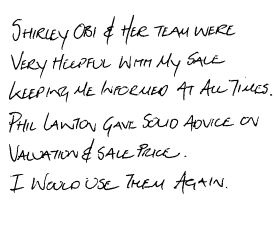 SHIRLEY OBI & HER TEAM WERE
VERY HELPFUL WITH MY SALE
KEEPING ME INFORMED AT ALL TIMES.
PHIL LAWTON GAVE SOLID ADVICE ON
VALUATION & SALE PRICE.
I WOULD USE THEM AGAIN.